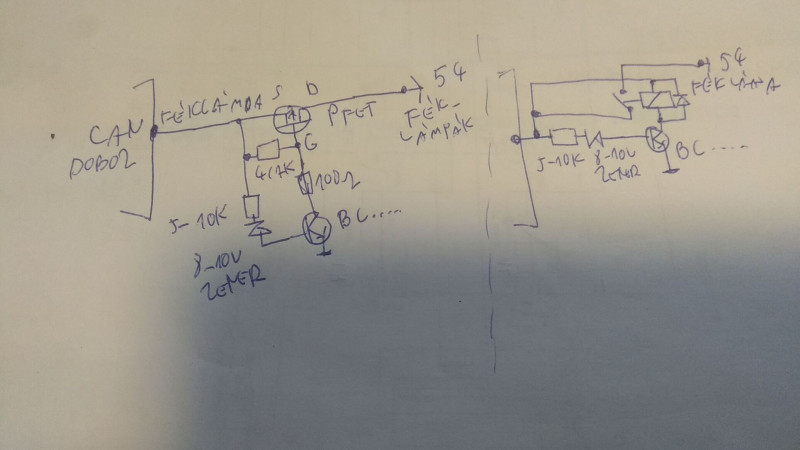 CAN
DOBOZ
FÉKLÁMDA
S D
PFET
54
FÉK-
LÁMPÁK
G
4,7K
100Ω
5-10K
BC.....
8-10V
ZENER
54
FÉKLÁMPA
5-10K
8-10V
ZENER
BC.....